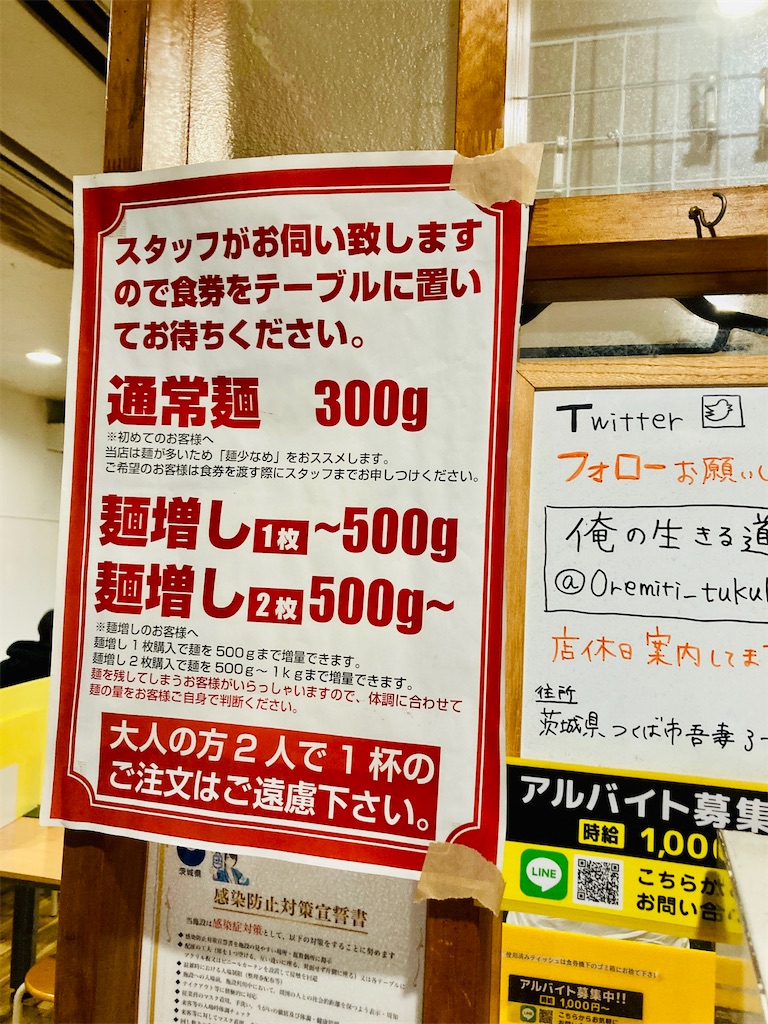 スタッフがお伺い致します
ので食券をテーブルに置い
てお待ちください。
通常麺 300g
※初めてのお客様へ
当店は麺が多いため「麺少なめ」をおススメします。
ご希望のお客様は食券を渡す際にスタッフまでお申しつけください。
麺増し1枚~500g
麺増し2枚500g~
※麺増しのお客様へ
麺増し1枚購入で麺を500gまで増量できます。
麺増し2枚購入で麺を500g~1kgまで増量できます。
麺を残してしまうお客様がいらっしゃいますので、体調に合わせて
麺の量をお客様ご自身で判断ください。
大人の方2人で1杯の
ご注文はご遠慮下さい。
Twitter
フォローお願いし
俺の生きる道
@Oremiti_tuku
店休日案内してま
住所
茨城県つくば市吾妻3-
アルバイト募集
時給 1,00
LINE
こちらか
お問い合
茨城県
感染防止対策宣誓書
当施設は感染症対策として、以下の対策をすることに努めます
使用済みティッシュは食券機下のゴミ箱にお捨て下さい
アルバイト募集中!!
時給 1,000円~
こちらからお気軽に